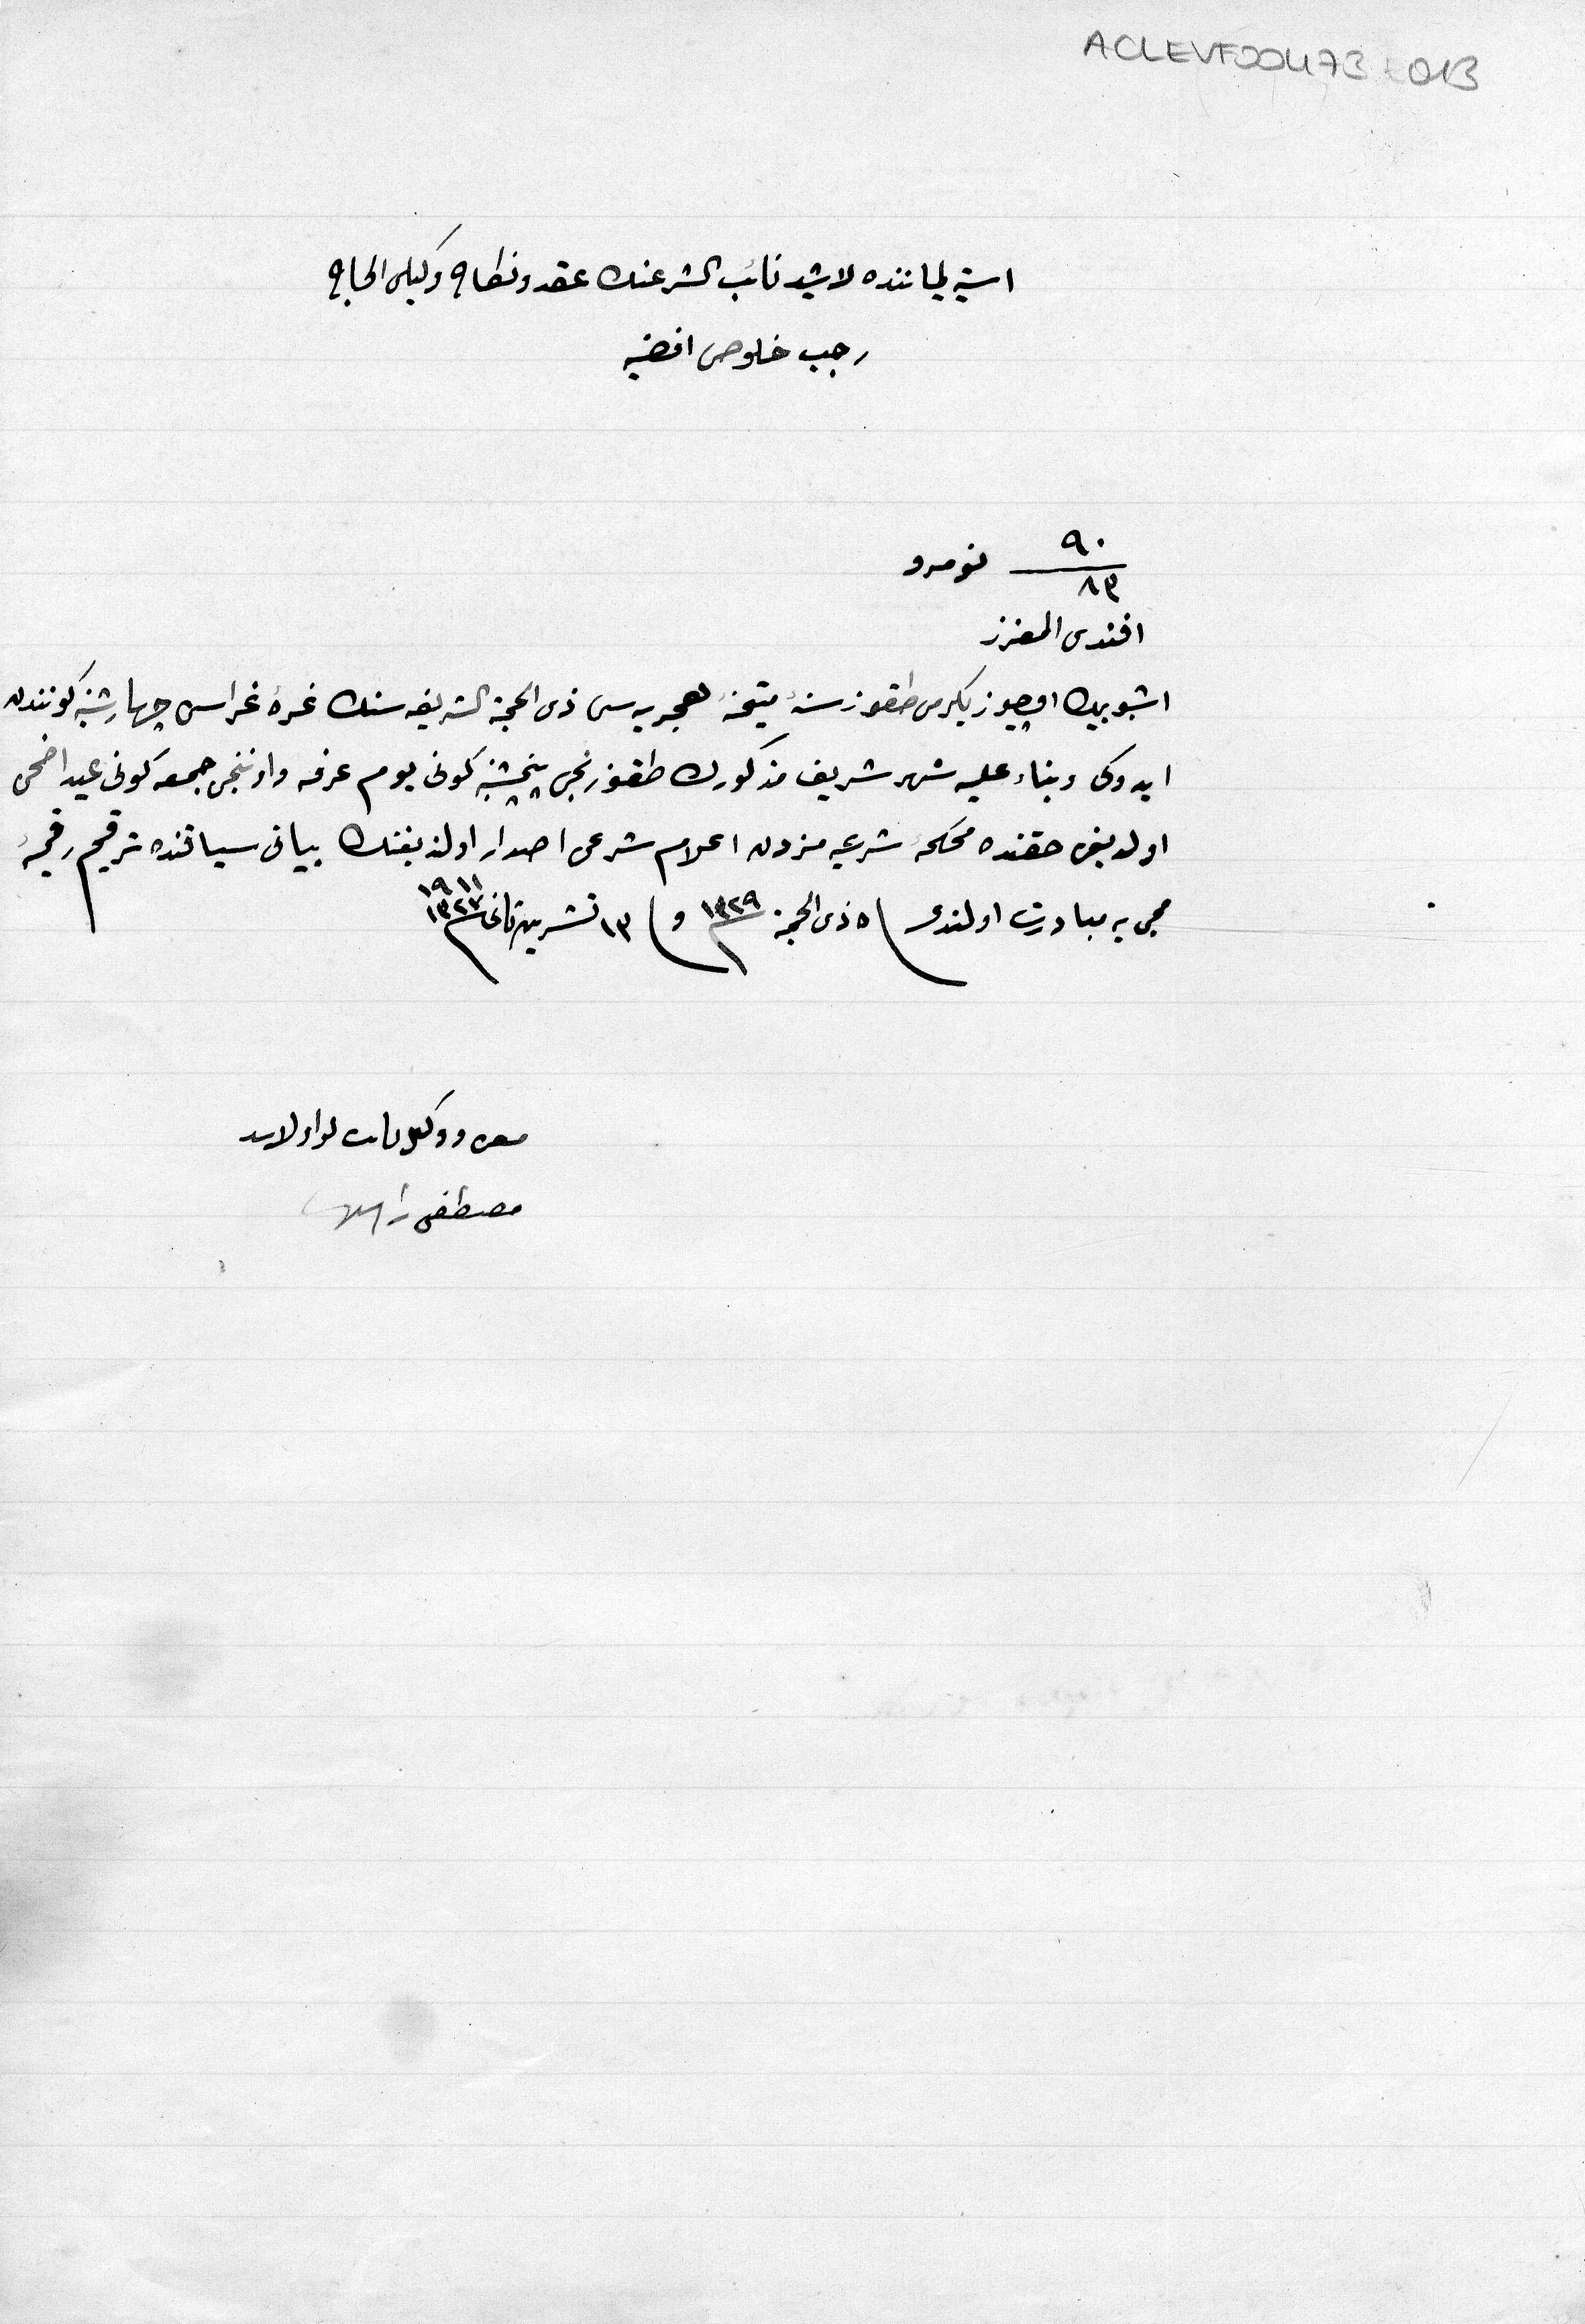 ACLEVF00473-013
استپه لیماننده لاشید نائب الشرعنك عقد ونكاح وكیلی الحاج
رجب خلوصی افندی یه
٩٠/٨٣ نومرو
افندی المعزز
اشبو بیك اوچیوز یكرمی طقوز سنۀ هجریه سی ذی الحجة الشریفه سنك غرۀ غراسی چهارشنبه كونندن
ایدوكی وبناء علیه شهر شریف مذكورك طقوزنجی پنجشنبه كونی یوم عرفه واوننجی جمعه كونی عید اضحی
اولدیغی حقنده محكمۀ شرعیه مزدن اعلام شرعی اصدار اولندیغنك بیانی سیاقنده ترقیم رقیمۀ
مبادرت اولندی ٥ ذی الحجة ١٣٢٩ و ١٣ تشرین ثانی ١٣٢٧
١١ ١٩
مصطفی